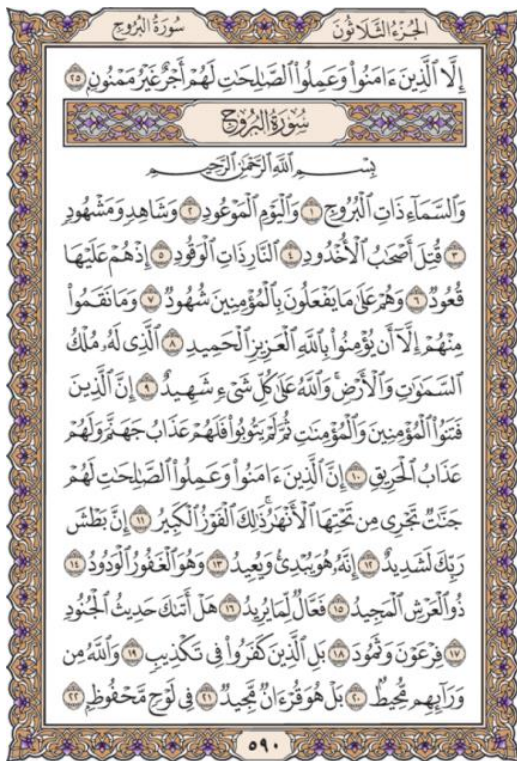 الجُزْءُ الثَّلَاثُونَ
سُورَةُ البُرُوجِ
إِلَّا ٱلَّذِينَ ءَامَنُوا۟ وَعَمِلُوا۟ ٱلصَّٰلِحَٰتِ لَهُمْ أَجْرٌ غَيْرُ مَمْنُونٍۭ ٢٥
سُورَةُ البُرُوجِ
بِسْمِ ٱللَّهِ ٱلرَّحْمَٰنِ ٱلرَّحِيمِ
وَٱلسَّمَآءِ ذَاتِ ٱلْبُرُوجِ ١ وَٱلْيَوْمِ ٱلْمَوْعُودِ ٢ وَشَاهِدٍ وَمَشْهُودٍ
٣ قُتِلَ أَصْحَٰبُ ٱلْأُخْدُودِ ٤ ٱلنَّارِ ذَاتِ ٱلْوَقُودِ ٥ إِذْ هُمْ عَلَيْهَا
قُعُودٌ ٦ وَهُمْ عَلَىٰ مَا يَفْعَلُونَ بِٱلْمُؤْمِنِينَ شُهُودٌ ٧ وَمَا نَقَمُوا۟
مِنْهُمْ إِلَّآ أَن يُؤْمِنُوا۟ بِٱللَّهِ ٱلْعَزِيزِ ٱلْحَمِيدِ ٨ ٱلَّذِى لَهُۥ مُلْكُ
ٱلسَّمَٰوَٰتِ وَٱلْأَرْضِ ۚ وَٱللَّهُ عَلَىٰ كُلِّ شَىْءٍ شَهِيدٌ ٩ إِنَّ ٱلَّذِينَ
فَتَنُوا۟ ٱلْمُؤْمِنِينَ وَٱلْمُؤْمِنَٰتِ ثُمَّ لَمْ يَتُوبُوا۟ فَلَهُمْ عَذَابُ جَهَنَّمَ وَلَهُمْ
عَذَابُ ٱلْحَرِيقِ ١٠ إِنَّ ٱلَّذِينَ ءَامَنُوا۟ وَعَمِلُوا۟ ٱلصَّٰلِحَٰتِ لَهُمْ
جَنَّٰتٌ تَجْرِى مِن تَحْتِهَا ٱلْأَنْهَٰرُ ۚ ذَٰلِكَ ٱلْفَوْزُ ٱلْكَبِيرُ ١١ إِنَّ بَطْشَ
رَبِّكَ لَشَدِيدٌ ١٢ إِنَّهُۥ هُوَ يُبْدِئُ وَيُعِيدُ ١٣ وَهُوَ ٱلْغَفُورُ ٱلْوَدُودُ ١٤
ذُو ٱلْعَرْشِ ٱلْمَجِيدُ ١٥ فَعَّالٌ لِّمَا يُرِيدُ ١٦ هَلْ أَتَىٰكَ حَدِيثُ ٱلْجُنُودِ
١٧ فِرْعَوْنَ وَثَمُودَ ١٨ بَلِ ٱلَّذِينَ كَفَرُوا۟ فِى تَكْذِيبٍ ١٩ وَٱللَّهُ مِن
وَرَآئِهِم مُّحِيطٌۢ ٢٠ بَلْ هُوَ قُرْءَانٌ مَّجِيدٌ ٢١ فِى لَوْحٍ مَّحْفُوظٍۭ ٢٢
٥٩٠